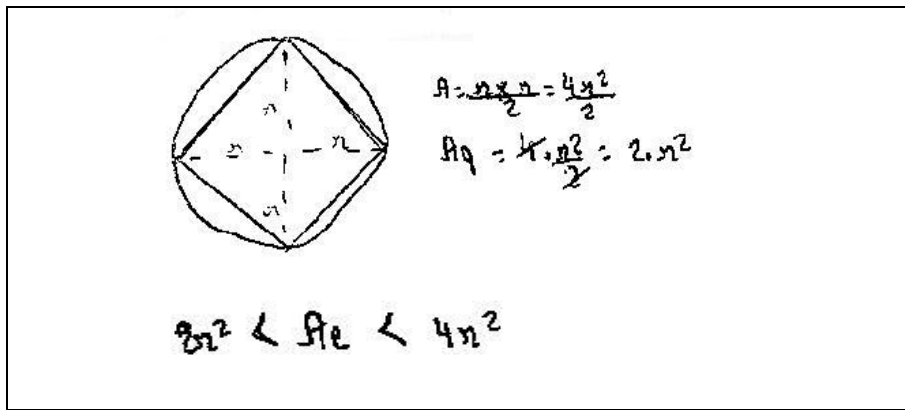 r
r r
r
A = r x r / 2 = 4r² / 2
Aq = 4 . r² / 2 = 2 . r²
2r² < Ac < 4r²